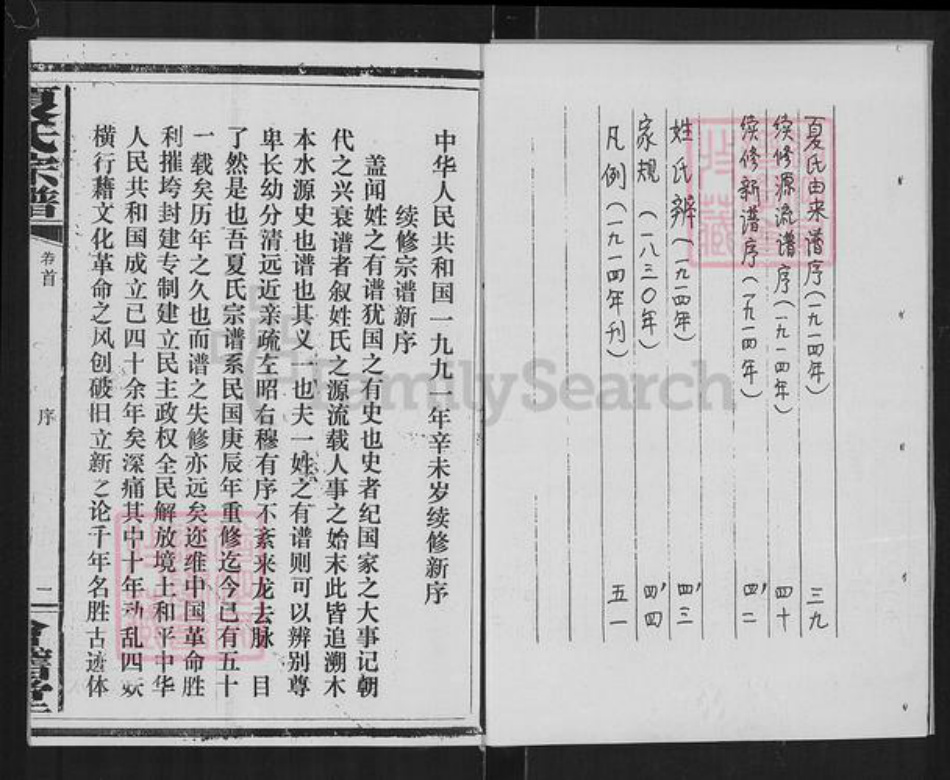 夏氏由来谱序（一九一四年） 三九
续修源流谱序（一九一四年） 四十
续修新谱序（一九一四年） 四二
姓氏辨（一九一四年） 四三
家规（一八三〇年） 四四
凡例（一九一四年刊） 五一
中华人民共和国一九九 年辛未岁续修新序
续修宗谱新序
盖闻姓之有谱犹国之有史也史者纪国家之大事记朝
代之兴衰谱者叙姓氏之源流载人事之始末此皆追溯木
本水源史也谱也其义一也夫一姓之有谱则可以辨别尊
卑长幼分清远近亲疏左昭右穆有序不紊来龙去脉 目
了然是也吾夏氏宗谱系民国庚辰年重修迄今已有五十
一载矣历年之久也而谱之失修亦远矣迩维中国革命胜
利摧垮封建专制建立民主政权全民解放境土和平中华
人民共和国成立已四十余年矣深痛其中十年动乱四妖
横行藉文化革命之风创破旧立新之论千年名胜古迹体
夏氏宗谱
卷首
序
二
FamilySearch